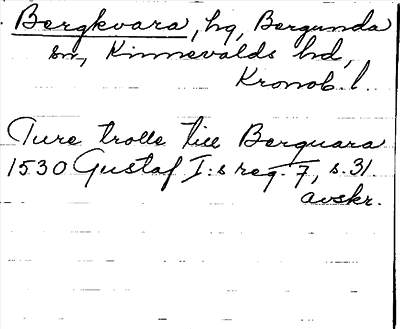 Bergkvara, hg, Bergunda
sn, Kinnevalds hd,
Kronob. l.
Ture trolle till Berquara
1530 Gustaf I:s reg. 7, s. 31.
avskr.